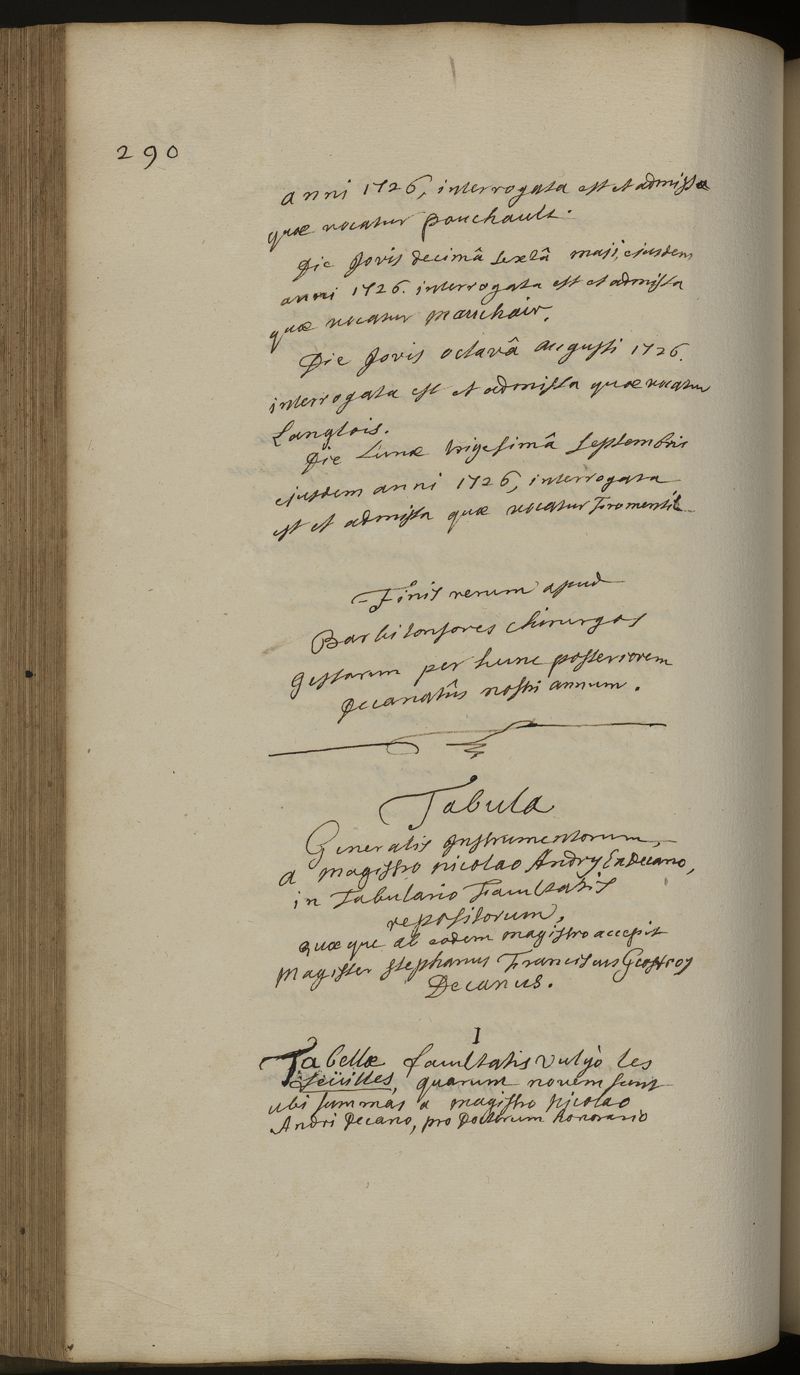 290
anni 1726, interrogata est et admissa
quæ vocatur pouchault.
Die Jovis decimâ sextâ maji, ejusdem
anni 1726. interrogata est et admissa
quæ vocatur mauchair.
Die Jovis octavâ augusti 1726.
interrogata est et admissa quæ vocatur
Langlois.
Die Lunæ trigesimâ septembris
ejusdem anni 1726, interrogata
est et admissa quæ vocatur Fromentil
Finis rerum apud
Barbitonsores chirurgos
gestarum per hunc posteriorem
Decanatûs nostri annum.
Tabula
Generalis Instrumentorum,
a magistro nicolao Andry Exdecano,
in Tabulario Facultatis
repositorum,
quæque ab eodem magistro accepit
Magister stephanus Franciscus Geoffroy
Decanus.
I
Tabellæ facultatis vulgò les
feüilles, quarum novem sunt
ubi summas a magistro Nicolao
Andri Decano, pro Doctorum honorario